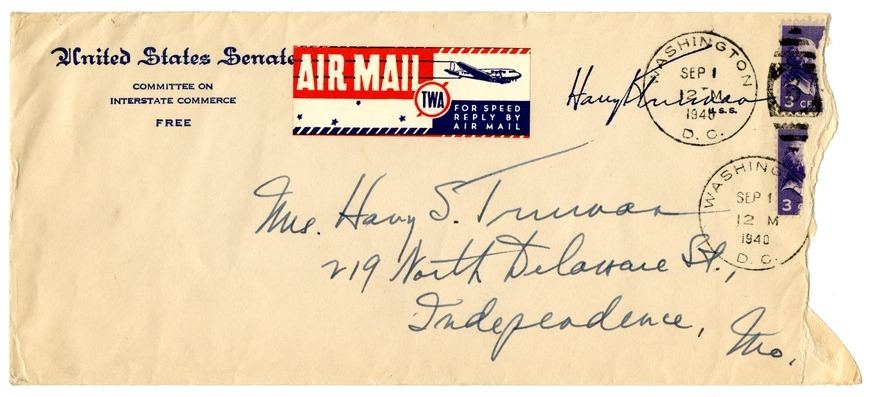 United States Senate
COMMITTEE ON
INTERSTATE COMMERCE
FREE
AIR MAIL
TWA
FOR SPEED
REPLY BY
AIR MAIL
Harry S. Truman
U.S.S.
WASHINGTON
SEP 1
12 M
1940
D. C.
3 CE
WASHING
SEP 1
12 M
1940
D. C.
3
Mrs. Harry S. Truman
219 North Delaware St.,
Independence, Mo.